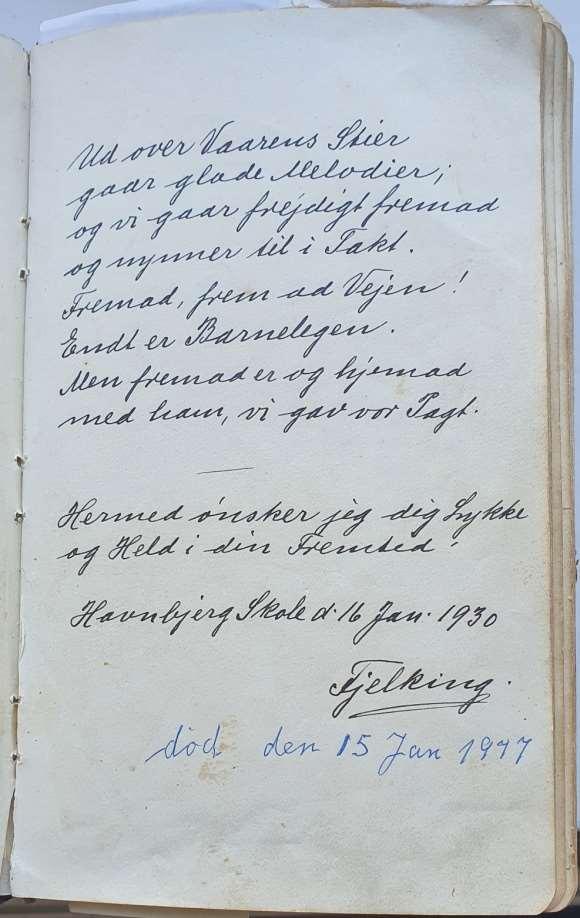 Ud over Vaarens Stier
gaar glade Melodier;
og vi gaar frejdigt fremad
og nynner til i Takt.
Fremad, frem ad Vejen!
Endt er Barnelegen.
Men fremad er og hjemad
med ham, vi gav vor Pagt.
Hermed ønsker jeg dig Lykke
og Held i din Fremtid.
Havnbjerg Skole d. 16 Jan. 1930
Fjelking.
død den 15 Jan 1977